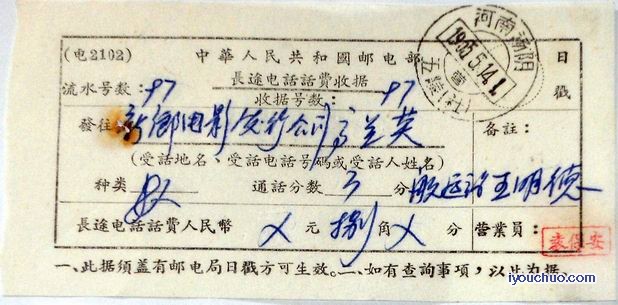 (电2102) 中華人民共和國邮电部 日
長途电話話費收据
流水号数：97 戳
收据号数：97
河南南阳
1965.5.14.1
發往 新鄉电影发行公司 高兰英 备註：
(受話地名、受話电話号碼或受話人姓名)
种类 通話分数 3 分 王明德
長途电話話費人民幣 X 元 捌 角 X 分 营業員： 袁保安
一、此据须盖有邮电局日戳方可生效。二、如有查詢事項，以此为据。
iyouchuo.com